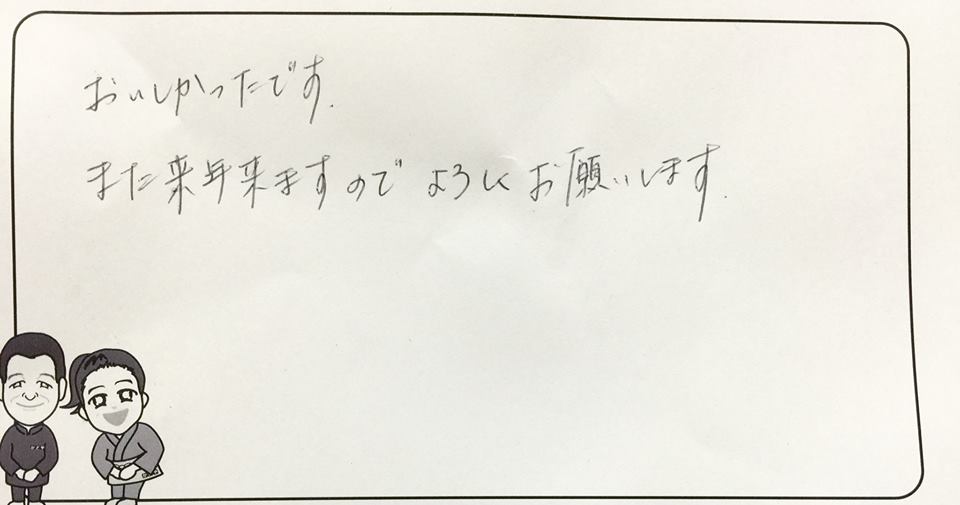 おいしかったです.
また来年来ますのでよろしくお願いします.